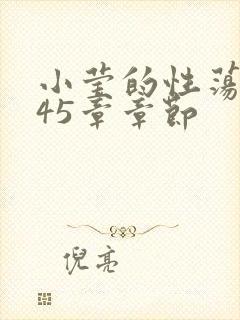 小莹的性荡
45章章节
倪亮